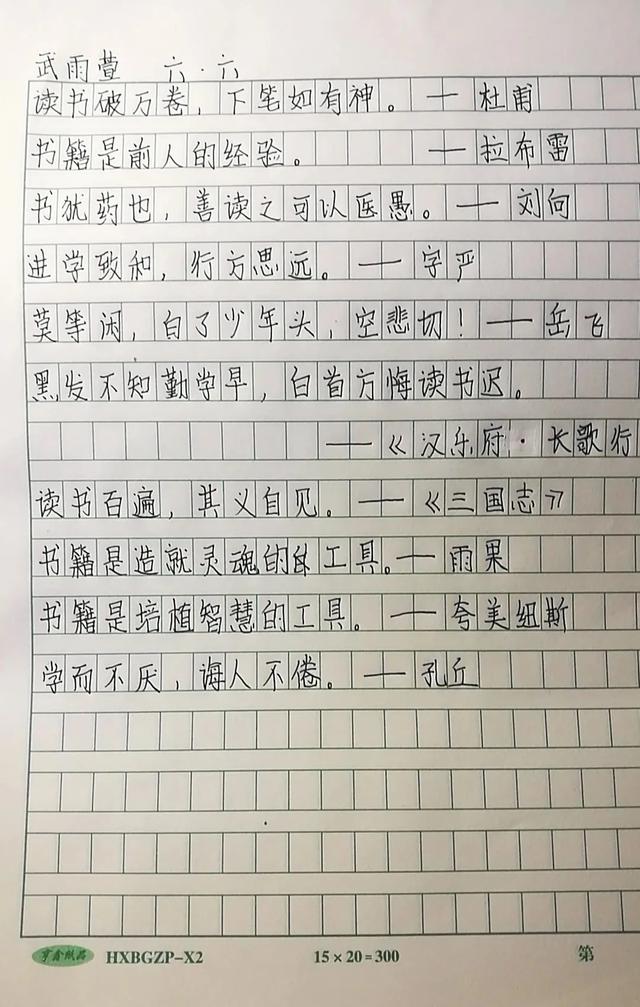 武雨萱 六.六
读书破万卷,下笔如有神。—杜甫
书籍是前人的经验。—拉布雷
书犹药也,善读之可以医愚。—刘向
进学致和,行方思远。—字严
莫等闲,白了少年头,空悲切!—岳飞
黑发不知勤学早,白首方悔读书迟。
—《汉乐府·长歌行
读书百遍,其义自见。—《三国志》
书籍是造就灵魂的工具。—雨果
书籍是培植智慧的工具。—夸美纽斯
学而不厌,诲人不倦。—孔丘
亨鑫纸品 HXBGZP-X2 15×20=300 第